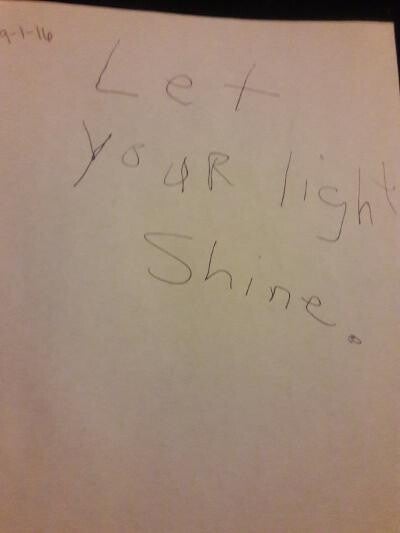 9-1-16
Let
youR light
Shine.